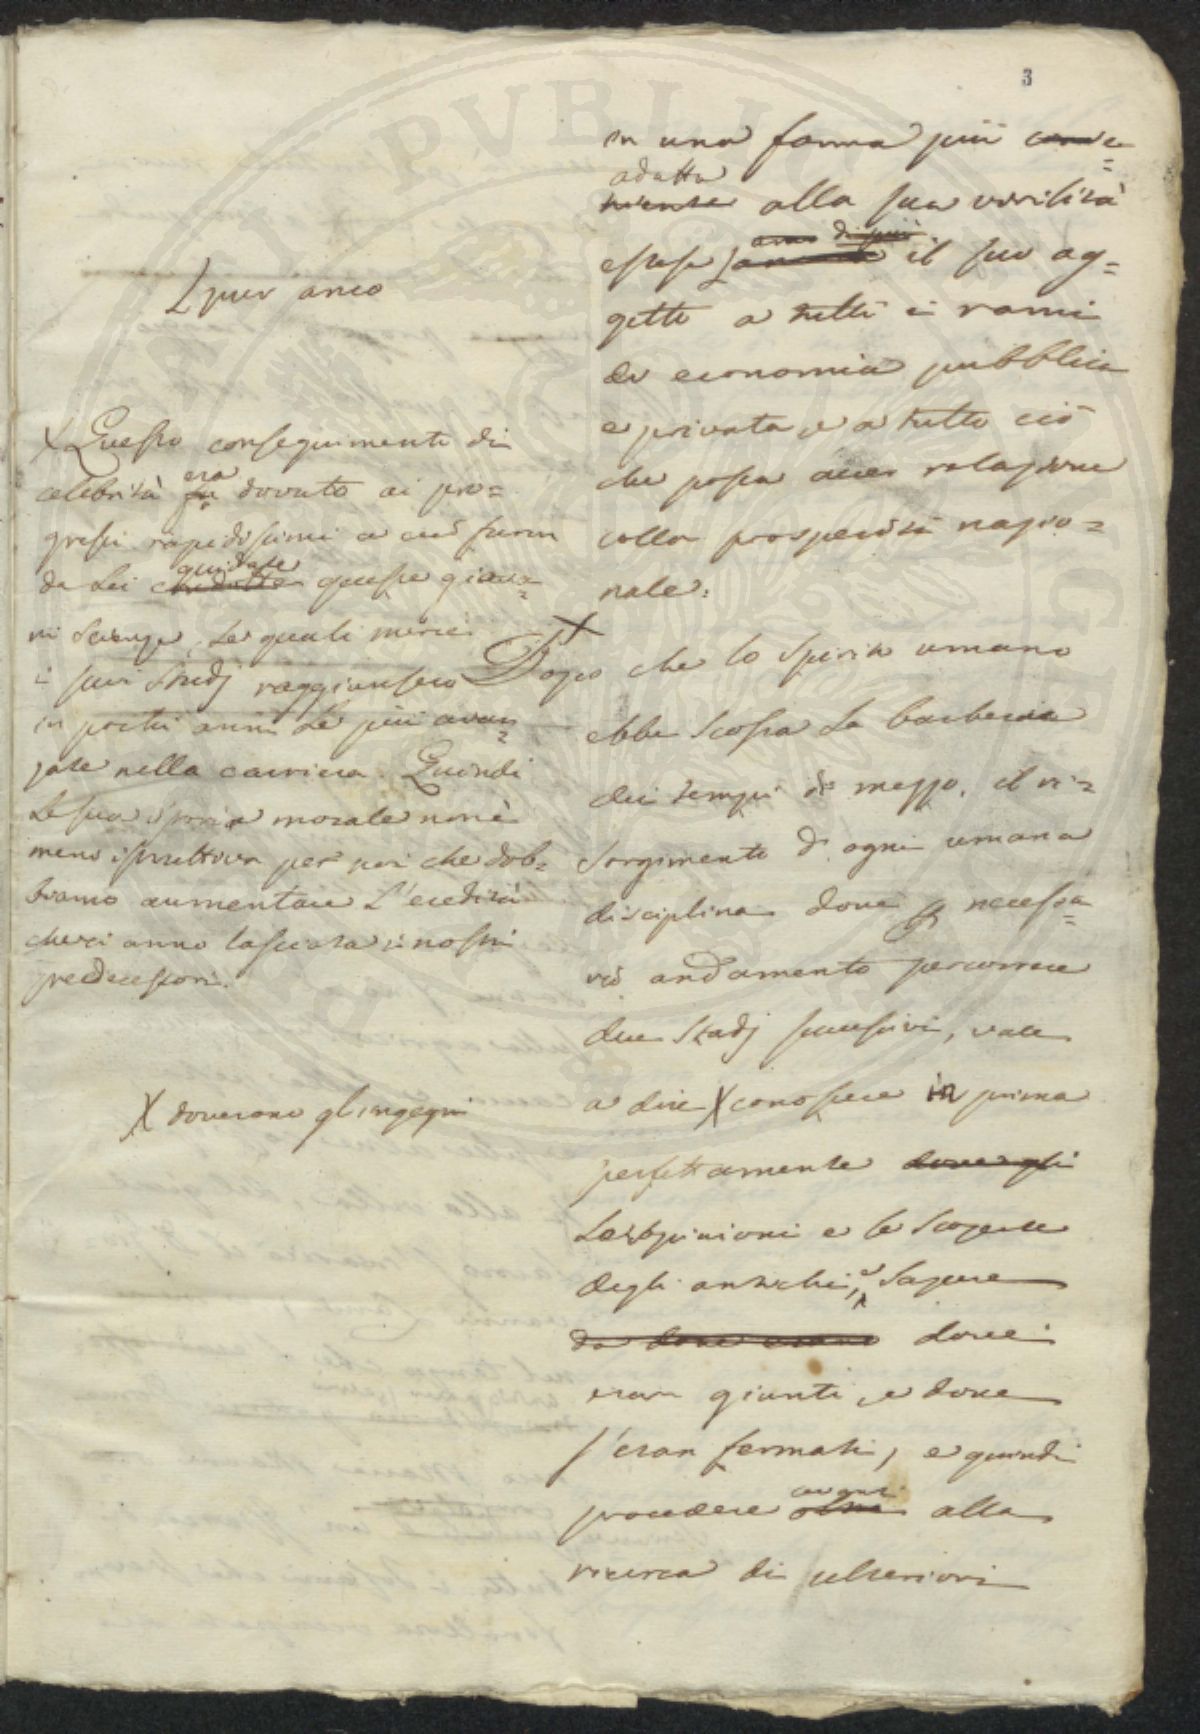 3
in una forma più conve=
adatta
niente alla sua virilità
anco di più
estese anco il suo og=
getto a tutti i rami
di economia pubblica
e privata, e a tutto ciò
che possa aver relazione
colla prosperità nazio=
nale.
X
Dopo che lo spirito umano
ebbe scossa la barbarie
dei tempi di mezzo, il ri=
sorgimento di ogni umana
disciplina dové necessa=
rio andamento percorrere
due stadj successivi, vale
a dire X conoscere in prima
perfettamente dover gli
Le opinioni e le scoperte
degli antichi, e sapere
da dove erano dove
eran giunti, e dove
s'eran fermati, e quindi
avanti
procedere oltre alla
ricerca di ulteriori
pur anco
X Questo conseguimento di
era
celebrità fu dovuto ai pro=
gressi rapidissimi a cui furon
guidate
da Lei condotte queste giova=
ni Scienze, le quali mercè
i suoi Studj raggiunsero
in pochi anni le più avan=
zate nella carriera. Quindi
la sua istoria morale non è
meno istruttiva per noi che dob=
biamo aumentare l'eredità
che ci anno lasciata i nostri
predecessori.
X doverono gl'ingegni